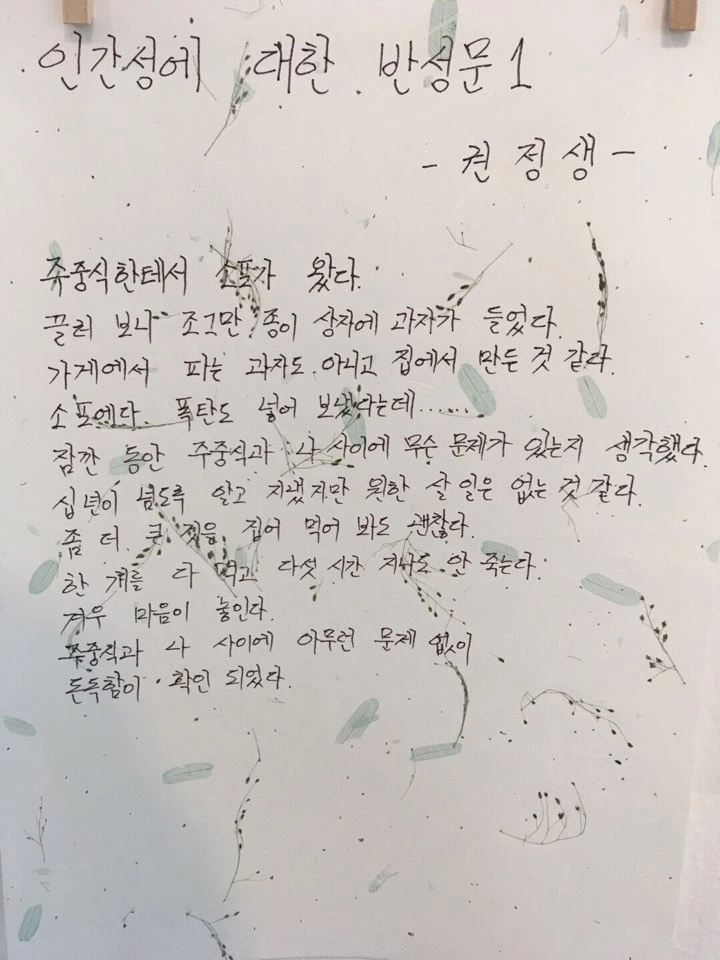 인간성에 대한 반성문 1
- 권정생 -
주중식한테서 소포가 왔다.
끌러 보니 조그만 종이 상자에 과자가 들었다.
가게에서 파는 과자도 아니고 집에서 만든 것 같다.
소포에다 폭탄도 넣어 보냈다는데......
잠깐 동안 주중식과 나 사이에 무슨 문제가 있는지 생각했다.
십년이 넘도록 알고 지냈지만 원한 살 일은 없는 것 같다.
좀 더 큰 것을 집어 먹어 봐도 괜찮다.
한 개를 다 먹고 다섯 시간 지나도 안 죽는다.
겨우 마음이 놓인다.
주중식과 나 사이에 아무런 문제 없이
돈독함이 확인 되었다.